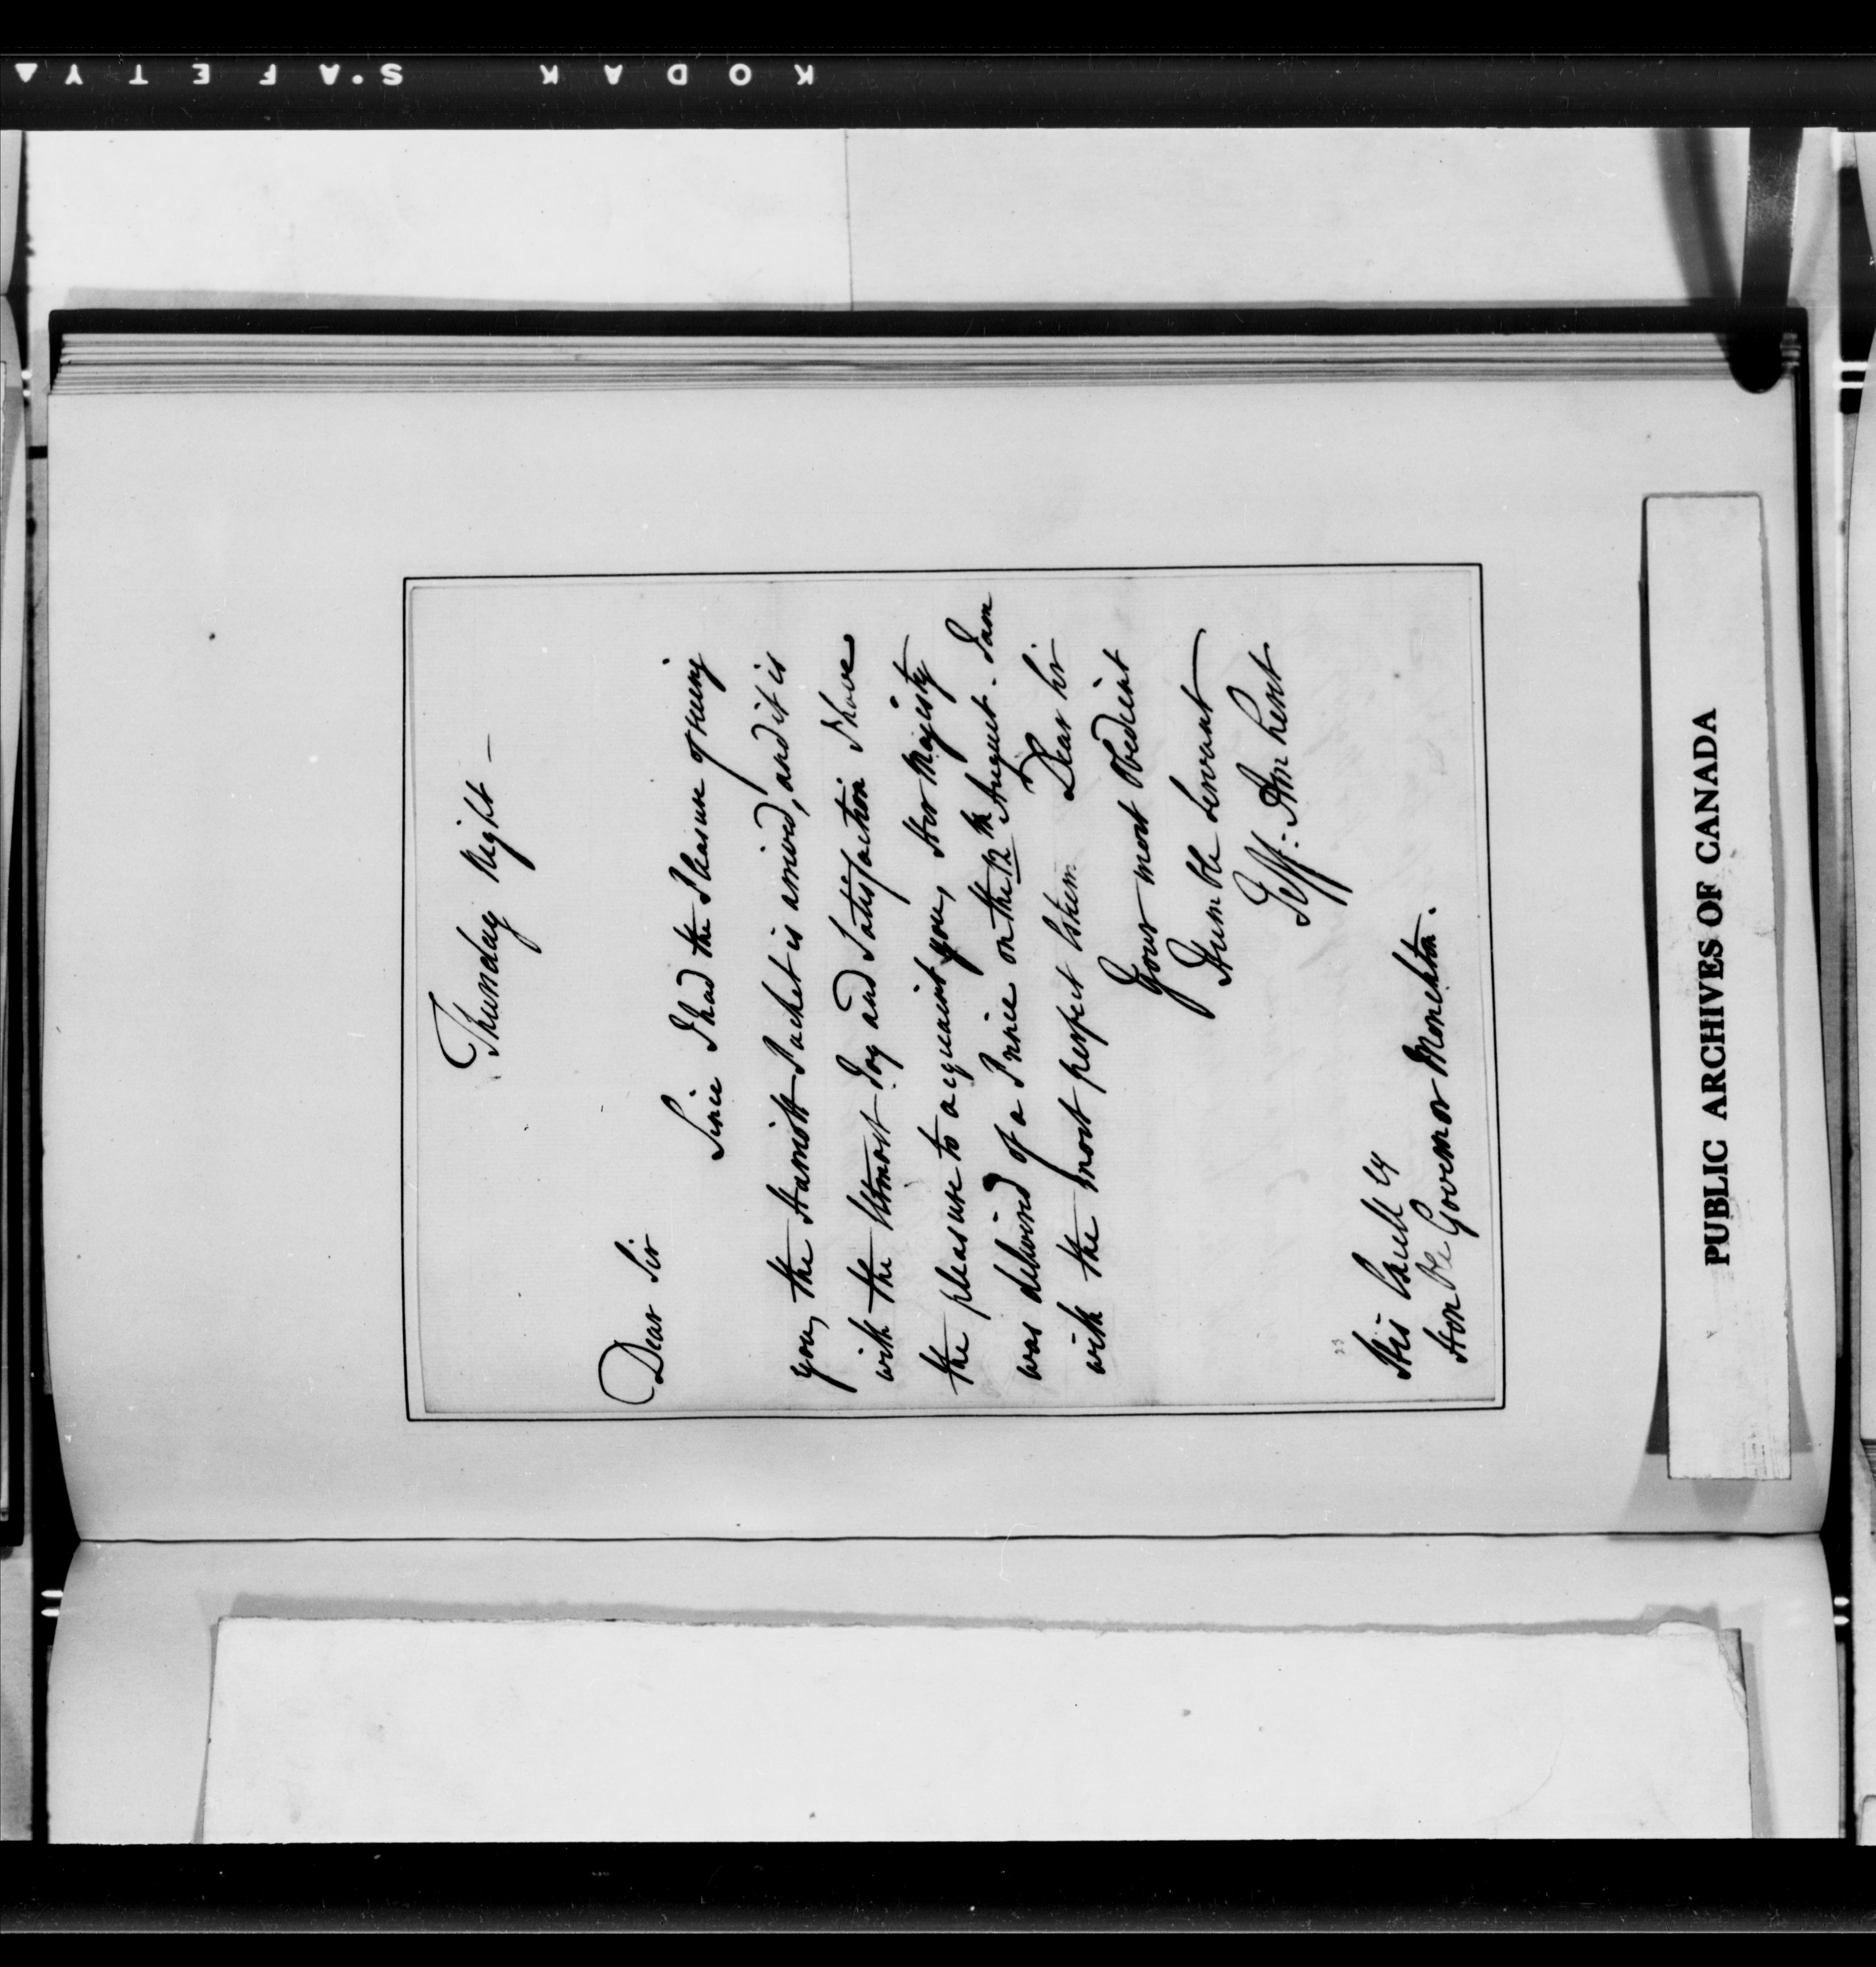 Thursday Night -
Dear Sir
Since I had the Pleasure of seeing
you, the Harriott Packet is arrived, and it is
with the Utmost Joy and Satisfaction I have
the pleasure to acquaint you, Her Majesty
was delivered of a Prince on the 12th August. I am
with the most perfect Esteem Dear Sir
Your most Obedient
Humble Servant
Jeff: Amherst
His Excell cy
Honble Governor Monckton.
PUBLIC ARCHIVES OF CANADA
KODAK SAFETY